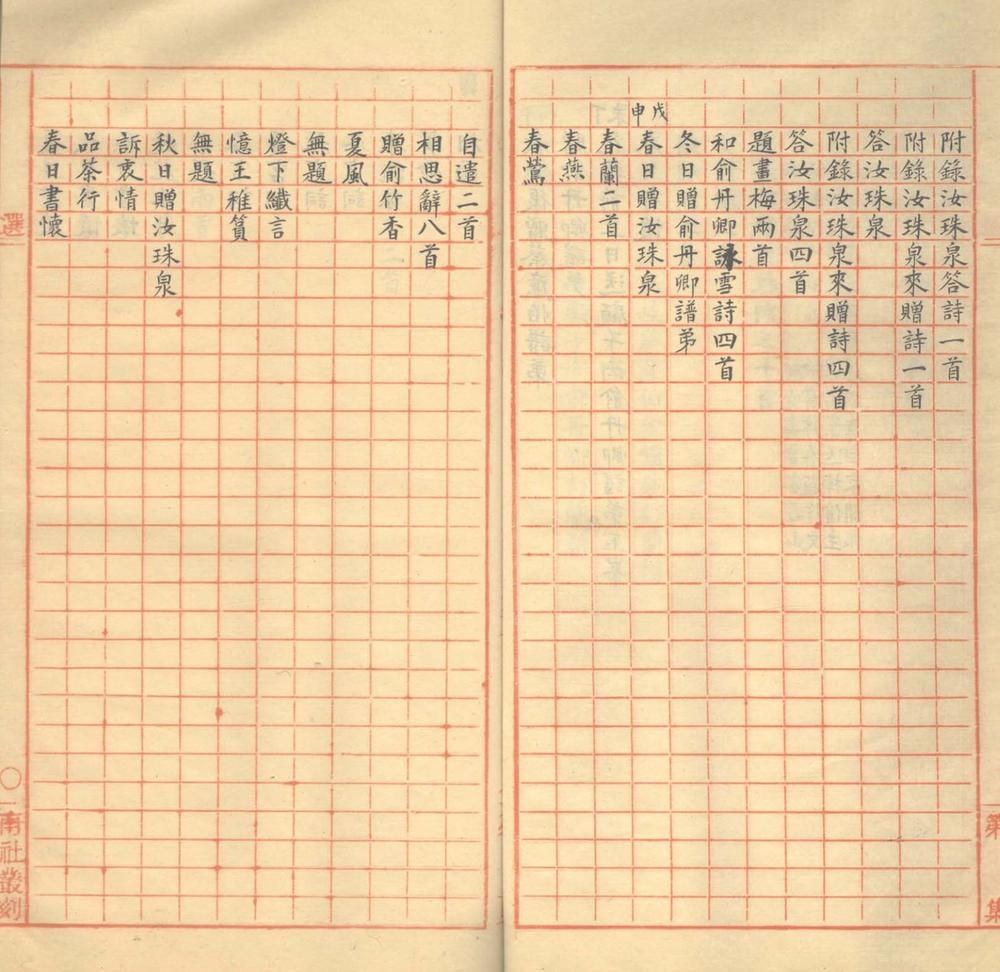 附錄汝珠泉答詩一首
附錄汝珠泉來贈詩一首
答汝珠泉
附錄汝珠泉來贈詩四首
答汝珠泉四首
題畫梅兩首
和俞丹卿詠雪詩四首
冬日贈俞丹卿譜弟
戊申
春日贈汝珠泉
春蘭二首
春燕
春鶯
自遣二首
相思辭八首
贈俞竹香
夏風
無題
燈下纖言
憶王稚篔
無題
秋日贈汝珠泉
訴衷情
品茶行
春日書懷
第
集
選
〇
南社叢刻